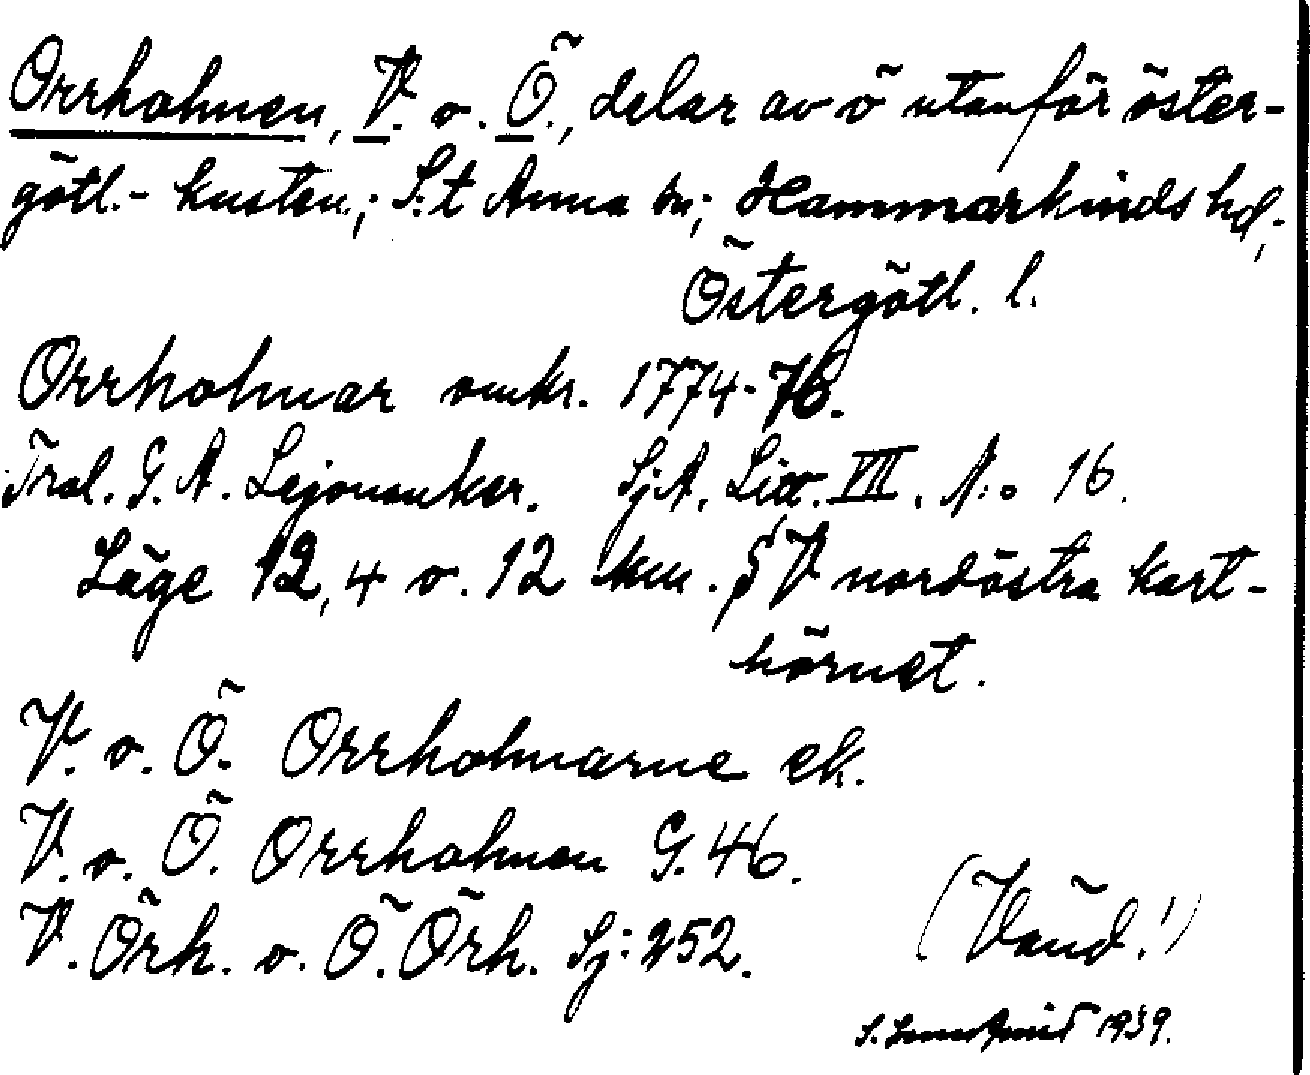 Orrholmen, V. o. Ö., delar av ö utanför öster-
götl.- kusten; S:t Anna sn; Hammarkinds hd;
Östergötl. l.
Orrholmar omkr. 1774-76.
Tral. G. A. Lejonanker. SjA. Litt. VII. N:o 16.
Läge 12,4 o. 12 km. SV nordöstra kart-
hörnet.
V. o. Ö. Orrholmarne ek.
V. o. Ö. Orrholmen G. 46.
V. Örh. o. Ö. Örh. Sj: 252.
(Vänd!)
S. 1939.